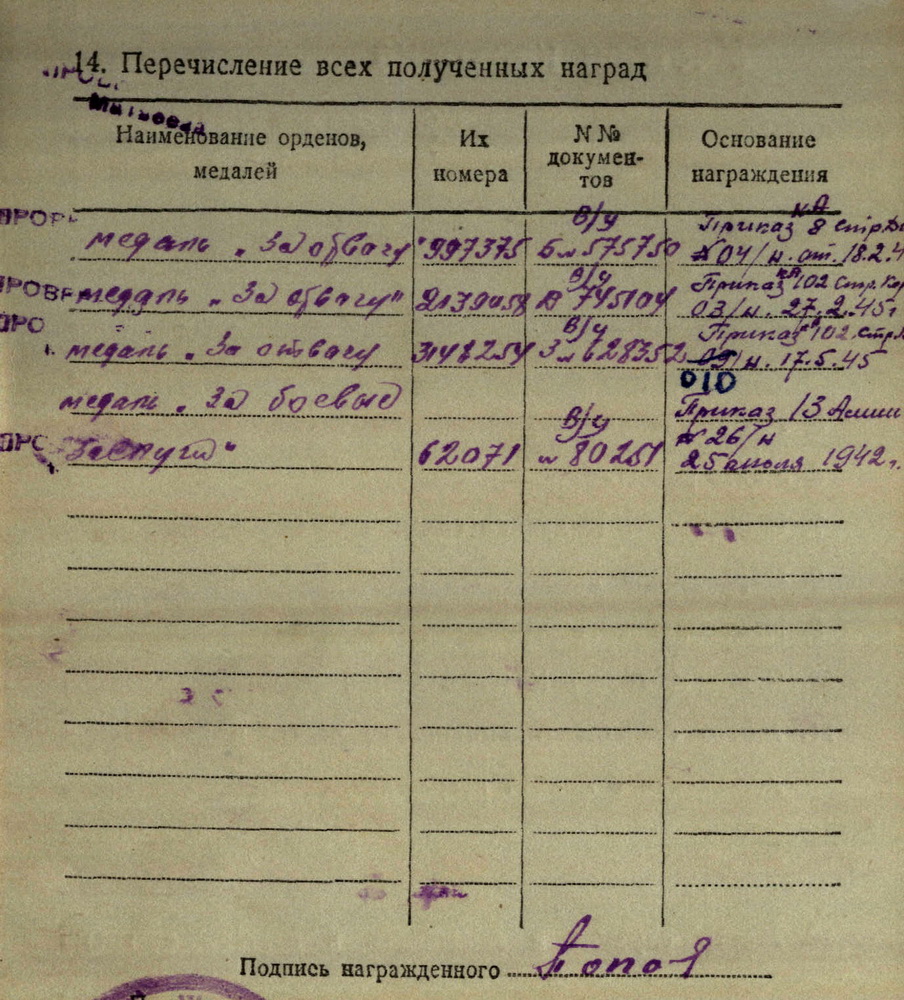 14. Перечисление всех полученных наград
Матвеева
Наименование орденов, медалей
Их номера
N № документов
Основание награждения
ПРОВЕ
медаль „За отвагу"
997375
В/у
Б № 575750
Приказ 8 Стр.
№ 04/н. от. 18.2.4
ПРОВЕ
медаль „За отвагу"
2139458
В/у
745104
Приказ 102 Стр. Кор
03/н. 27.2.45г
ПРО
медаль „За отвагу
3148254
В/у
З № 628352
Приказ 102. Стр.
/н. 17.5.45
010
медаль „За боевые
ПРО
Заслуги"
62071
В/у
№ 80251
Приказ 13 Армии
№ 26/н
25 апреля 1942 г.
Подпись награжденного Попов